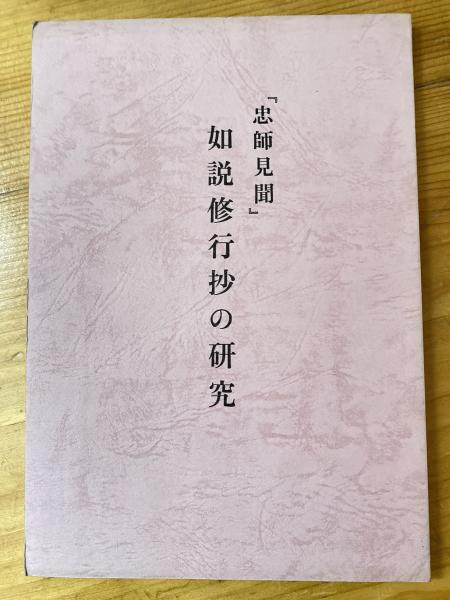 『忠師見聞』
如説修行抄の研究